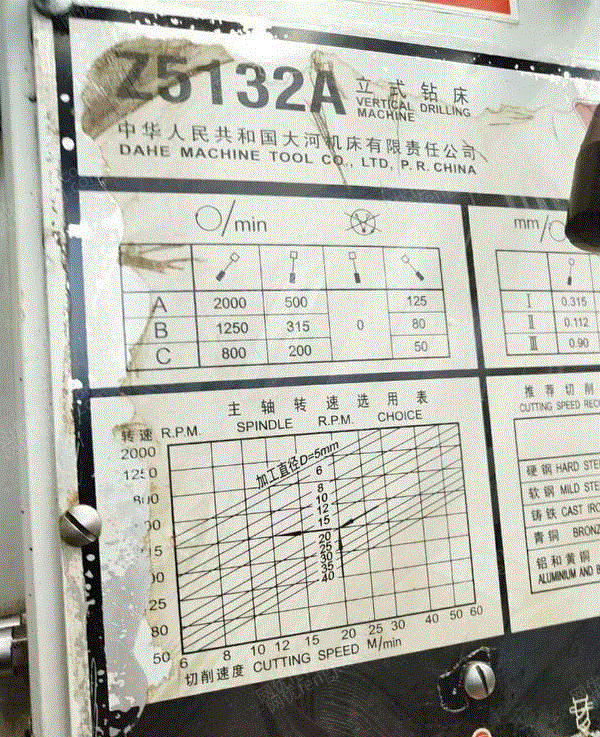 Z5132A
立式钻床
VERTICAL DRILLING
MACHINE
中华人民共和国大河机床有限责任公司
DAHE MACHINE TOOL CO., LTD, P.R. CHINA
/min
A 2000 500 0 125
B 1250 315 80
C 800 200 50
mm/
I 0.315
II 0.112
III 0.90
主轴转速选用表
转速 R.P.M. SPINDLE R.P.M. CHOICE
2000
1250
80
50
加工直径D=5mm
6
8
10
12
15
20
25
30
35
40
6 8 10 12 15 20 25 30 40 50 60
切削速度 CUTTING SPEED M/min
推荐切削
CUTTING SPEED
硬钢 HARD
软钢 MILD
铸铁 CAST
青铜
铝和黄铜
ALUMINIUM AND